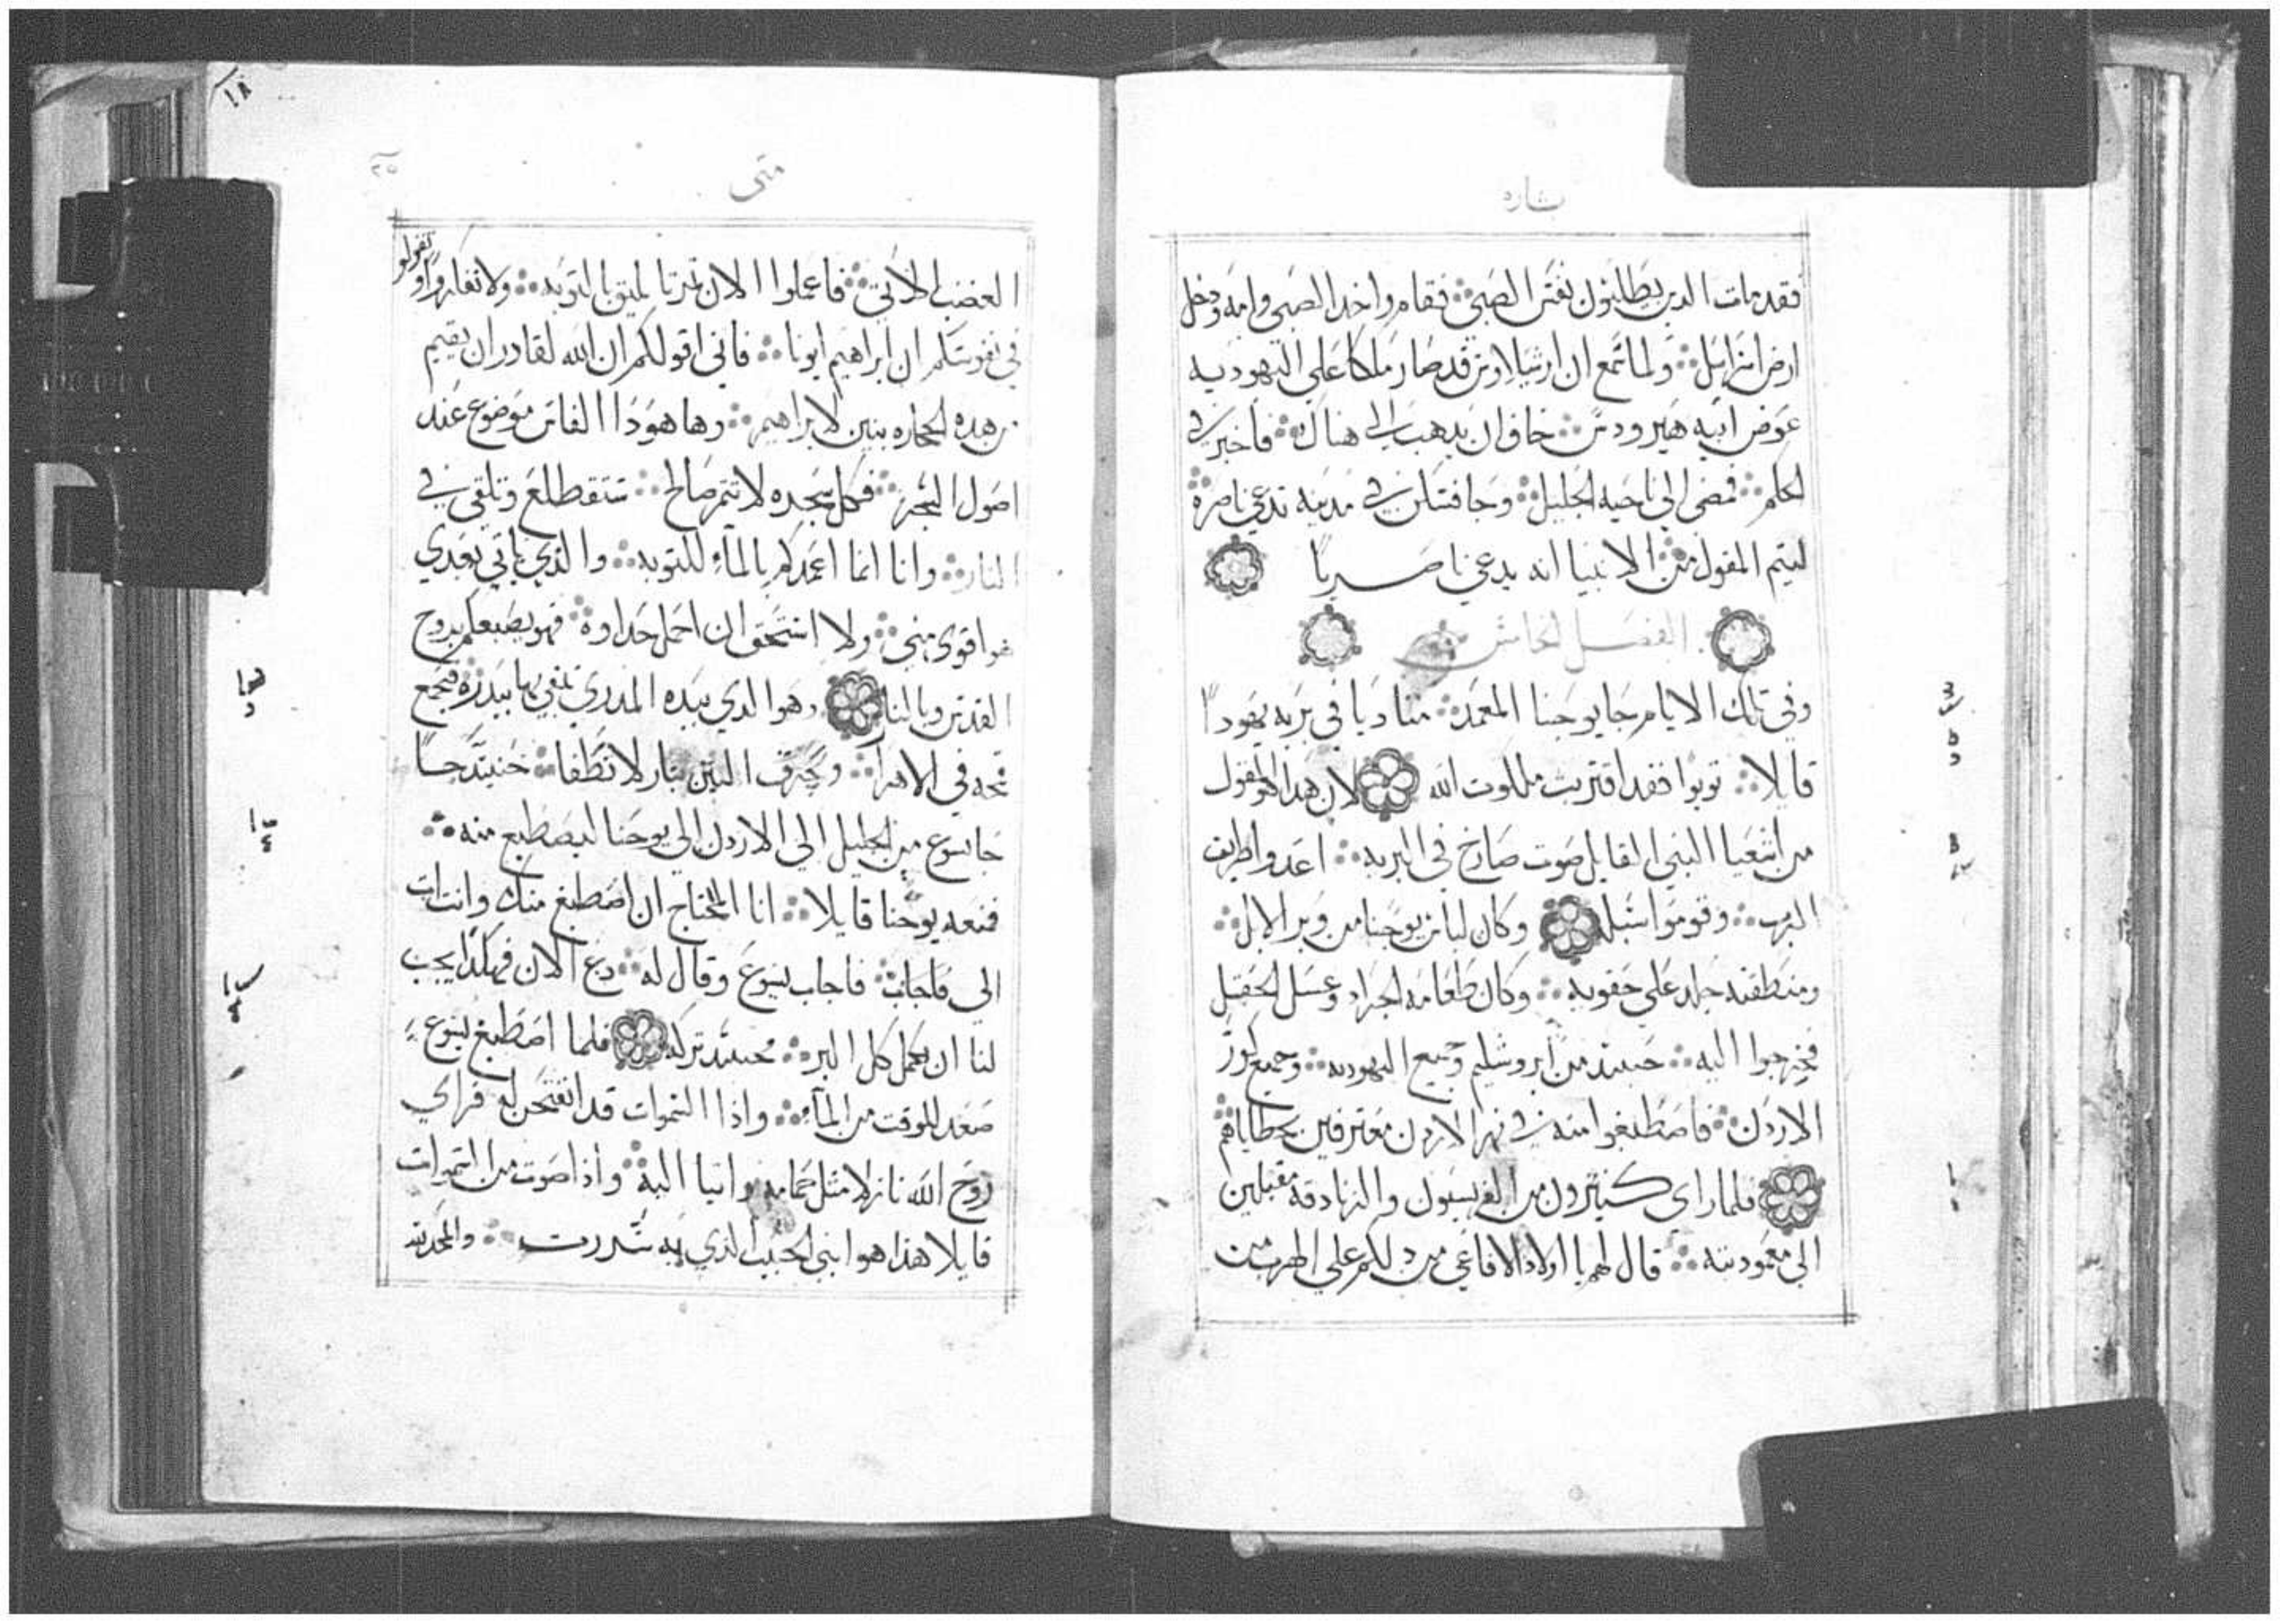 بشاره
فقد مات الدين يطلبون نفس الصبي فقام واخد الصبي وامه ودخل
ارض اسرايل ولما سمع ان ارشيلاوس قد صار ملكا على اليهوديه
عوض ابيه هيرودس خاف ان يدهب الى هناك فاخبر في
الحلم فمضى الى ناحيه الجليل وجا فسكن في مدينه تدعي ناصره
ليتم المقول من الانبيا انه يدعي ناصريا
الفصل الخامس
وفي تلك الايام جا يوحنا المعمد مناديا في بريه يهودا
قايلا توبوا فقد اقتربت ملكوت الله لان هذا هو المقول
من اشعيا النبي القايل صوت صارخ في البريه اعدوا طريق
الرب وقوموا سبله وكان لباس يوحنا من وبر الابل
ومنطقته جلد على حقويه وكان طعامه الجراد وعسل الحقل
فخرجوا اليه حينيد من ايروشليم وجميع اليهوديه وجميع كور
الاردن فاصطبغوا منه في نهر الاردن معترفين بخطاياهم
فلما راي كثيرون من الفريسيون والزنادقه مقبلين
الى معموديته قال لهم يا اولاد الافاعي من دلكم على الهرب من
١٨
متى
الغضب الاتي فاعملوا الان ثمرتا تليق بالتوبه ولا تفكروا او تقولو
في نفوسكم ان ابراهيم ابونا فاني اقول لكم ان الله لقادر ان يقيم
من هده الحجاره بنين لابراهيم وها هودا الفاس موضوع عند
اصول الشجر فكل شجره لا تثمر صالح ستقطع وتلقى في
النار وانا انما اعمدكم بالمآء للتوبه والذي ياتي بعدي
هو اقوى مني ولا استحق ان احمل حداوه فهو يصبغكم بروح
القدس وبالنار وهو الدي بيده المدري ينقي بها بيدره فيجمع
قمحه في الاهرآ ويحرق التبن بنار لا تطفا حنيئد جا
جا يسوع من الجليل الى الاردن الي يوحنا ليصطبغ منه
فمنعه يوحنا قايلا انا المحتاج ان اصطبغ منك وانت ات
الي فاجاب فاجاب يسوع وقال له دع الان فهكذا يجب
لنا ان نكمل كل البر حينيد تركه فلما اصطبغ يسوع
صعد للوقت من المآء واذا السموات قد انفتحن له فراي
روح الله نازلا مثل حمامه واتيا اليه واذا صوت من السموات
قايلا هذا هو ابني الحبيب الذي به سررت